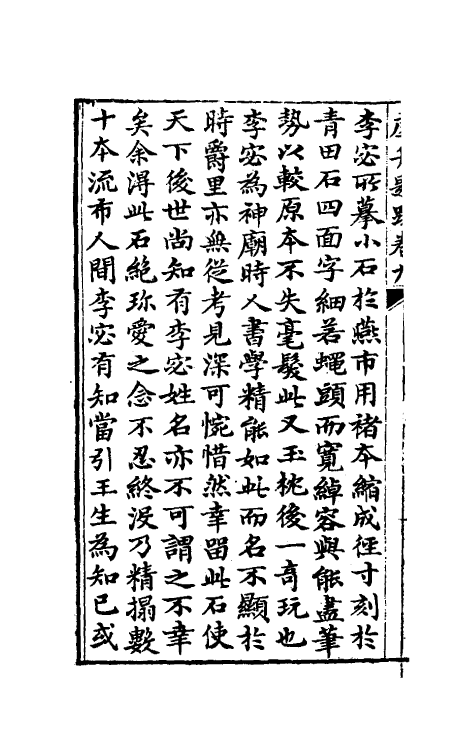 虛舟題跋卷九
李宓所摹小石於燕市用褚本縮成徑寸刻於
青田石四面字細若蠅頭而寬綽容與能盡筆
勢以較原本不失毫髮此又玉枕後一奇玩也
李宓為神廟時人書學精能如此而名不顯於
時爵里亦無從考見深可惋惜然幸留此石使
天下後世尚知有李宓姓名亦不可謂之不幸
矣余淂此石絕珍愛之念不忍終沒乃精搨數
十本流布人間李宓有知當引王生為知己或